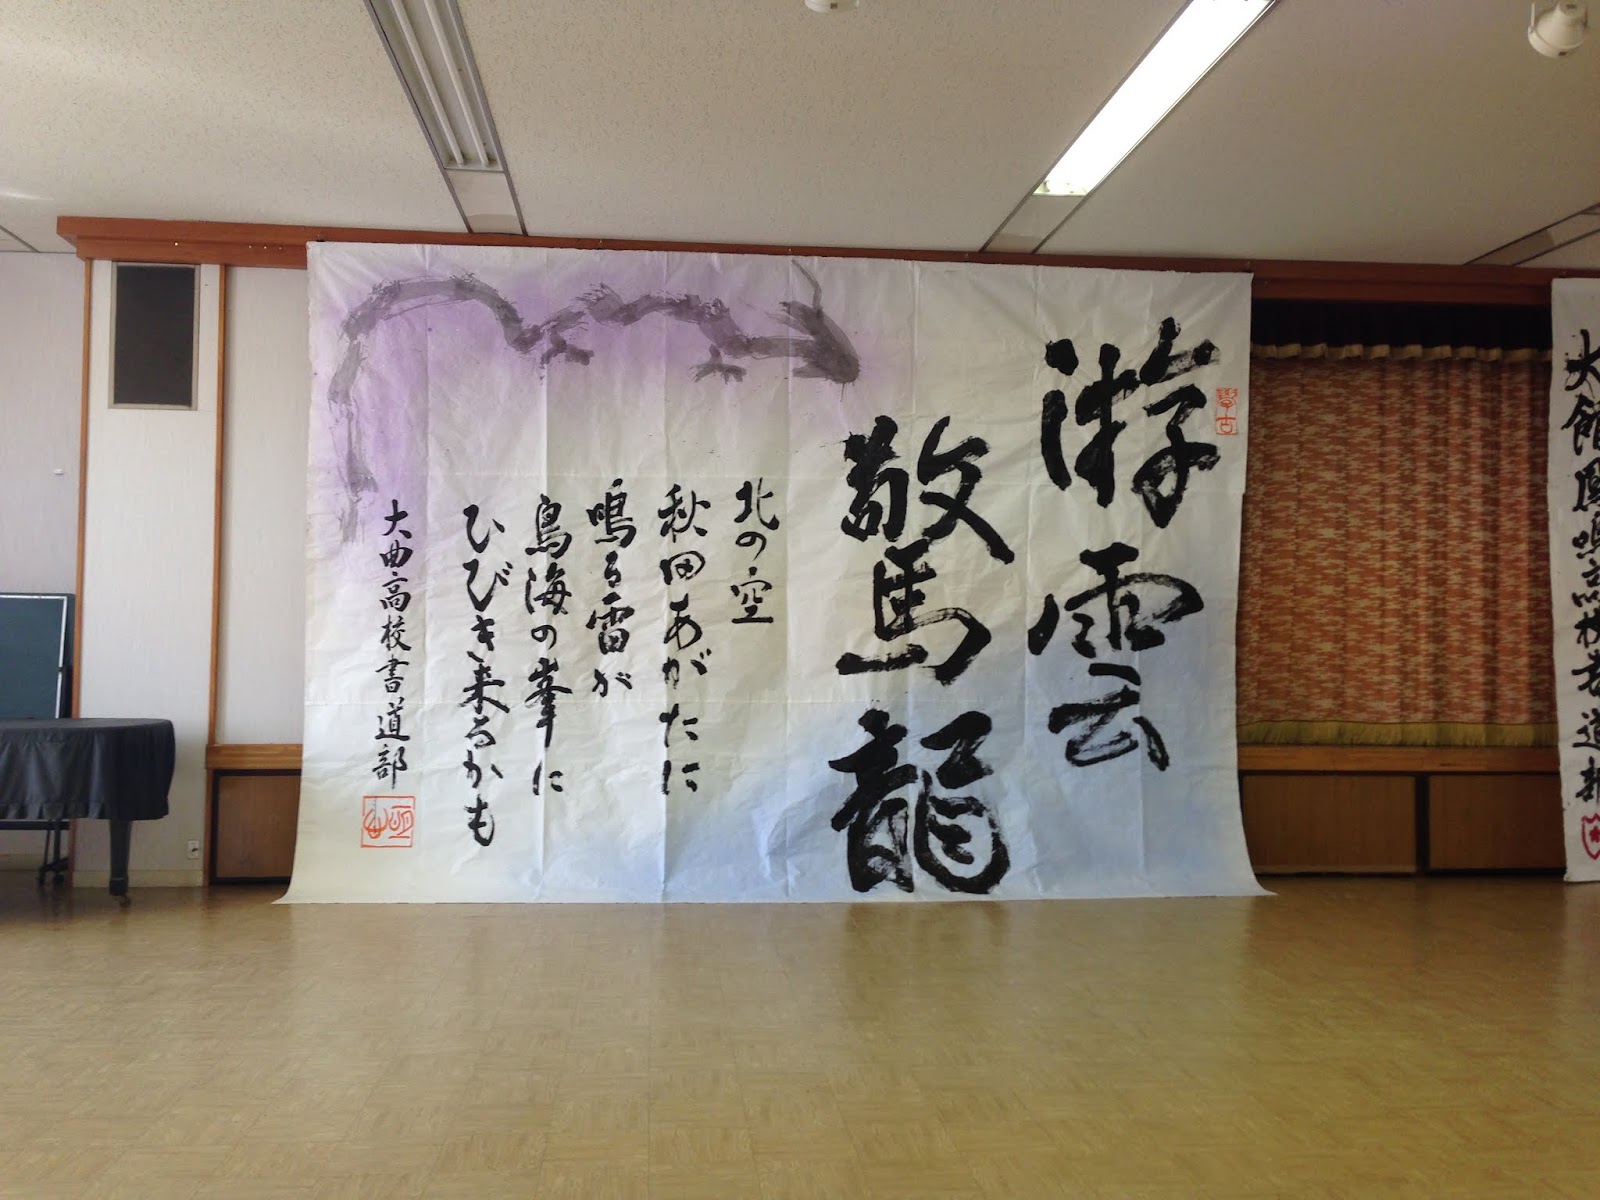 大館鳳鳴高校書道部
游雲
驚龍
北の空
秋田あがたに
鳴る雷が
鳥海の峯に
ひびき来るかも
大曲高校書道部